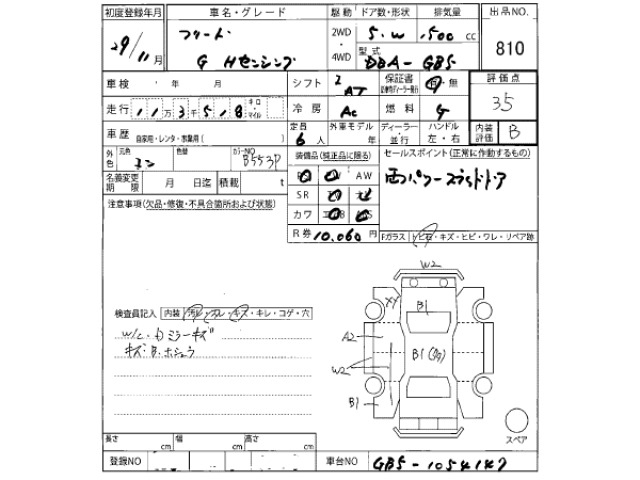 初度登録年月 車名・グレード 駆動 ドア数・形状 排気量 出品NO.
29/11月 フリード 2WD 5.W 1500 cc 810
G Hセンシング 4WD 型式 DBA-GB5
車検 年 月 シフト AT 保証書 有・無 評価点
走行 11万3千518 キロ・マイル 冷房 AC 燃料 G 35
車歴 自家用・レンタ・事業用( ) 定員 6人 外車モデル 年 ディーラー・並行 ハンドル 左・右 内装評価 B
外色 元色 コン 色替 カラーNO B553P 装備品(純正品に限る) セールスポイント(正常に作動するもの)
名義変更期限 月 日迄 積載 t AW 両パワースライドドア
注意事項(欠品・修復・不具合箇所および状態) SR
カワ
R券 10,060円 Fガラス トビ石・キズ・ヒビ・ワレ・リペア跡
W2
XY B1
検査員記入 内装 汚レ・スレ・キズ・キレ・コゲ・穴
W/C・Dミラーキズ A2
キズB.ホシュウ B1(多)
W2
B1
スペア
長さ cm 幅 cm 高さ cm
登録NO 車台NO GB5-1054147